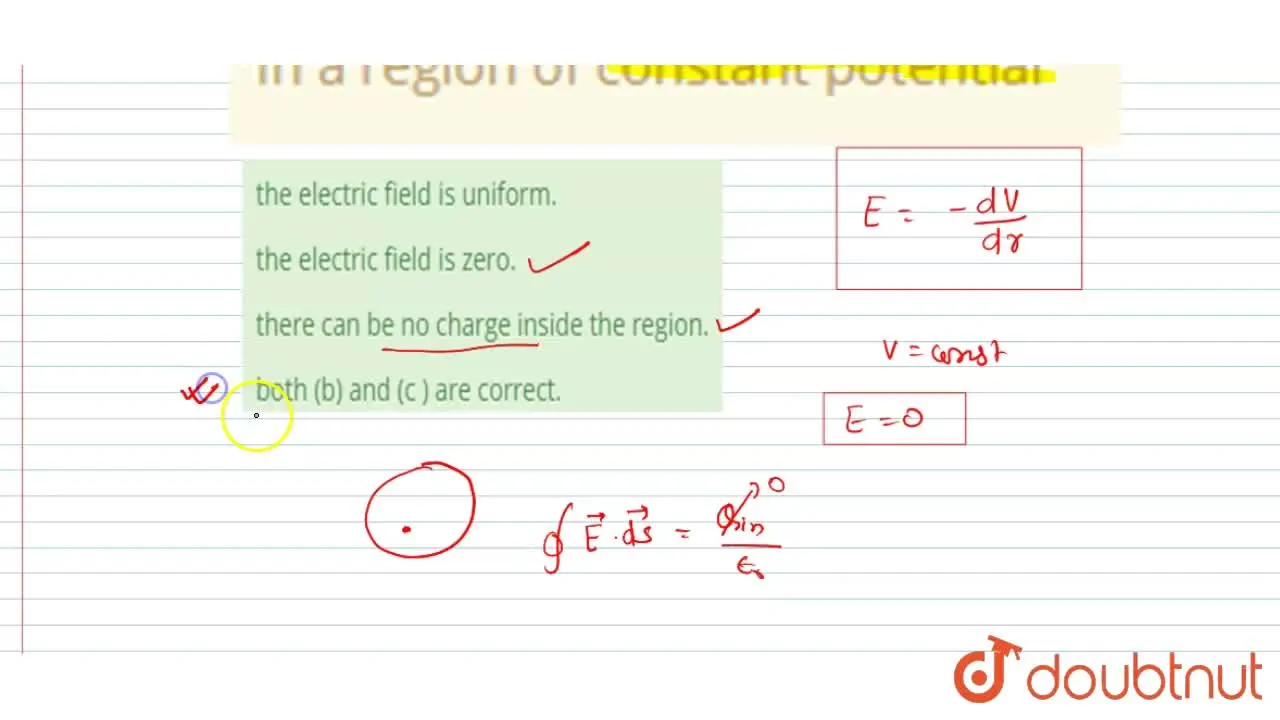 in a region of constant potential
the electric field is uniform.
the electric field is zero.
there can be no charge inside the region.
both (b) and (c ) are correct.
E = - dV
dr
V = const
E = 0
∮ E⃗ . ds⃗ = qin → 0
ε₀
doubtnut